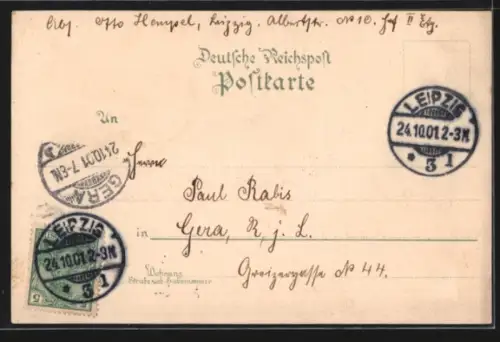 Abs. Otto Hempel, Leipzig. Albertstr. No 10. Hof II Etg.
Deutsche Reichspost
Postkarte
LEIPZIG
24.10.01.2-3N
* 3 1
An
GERA
24.10.01.7-8N.
Herrn
Paul Rabis
in Gera, R. j. L.
Greizergasse No 44.
LEIPZIG
24.10.01.2-3N
* 3 1
5
Wohnung